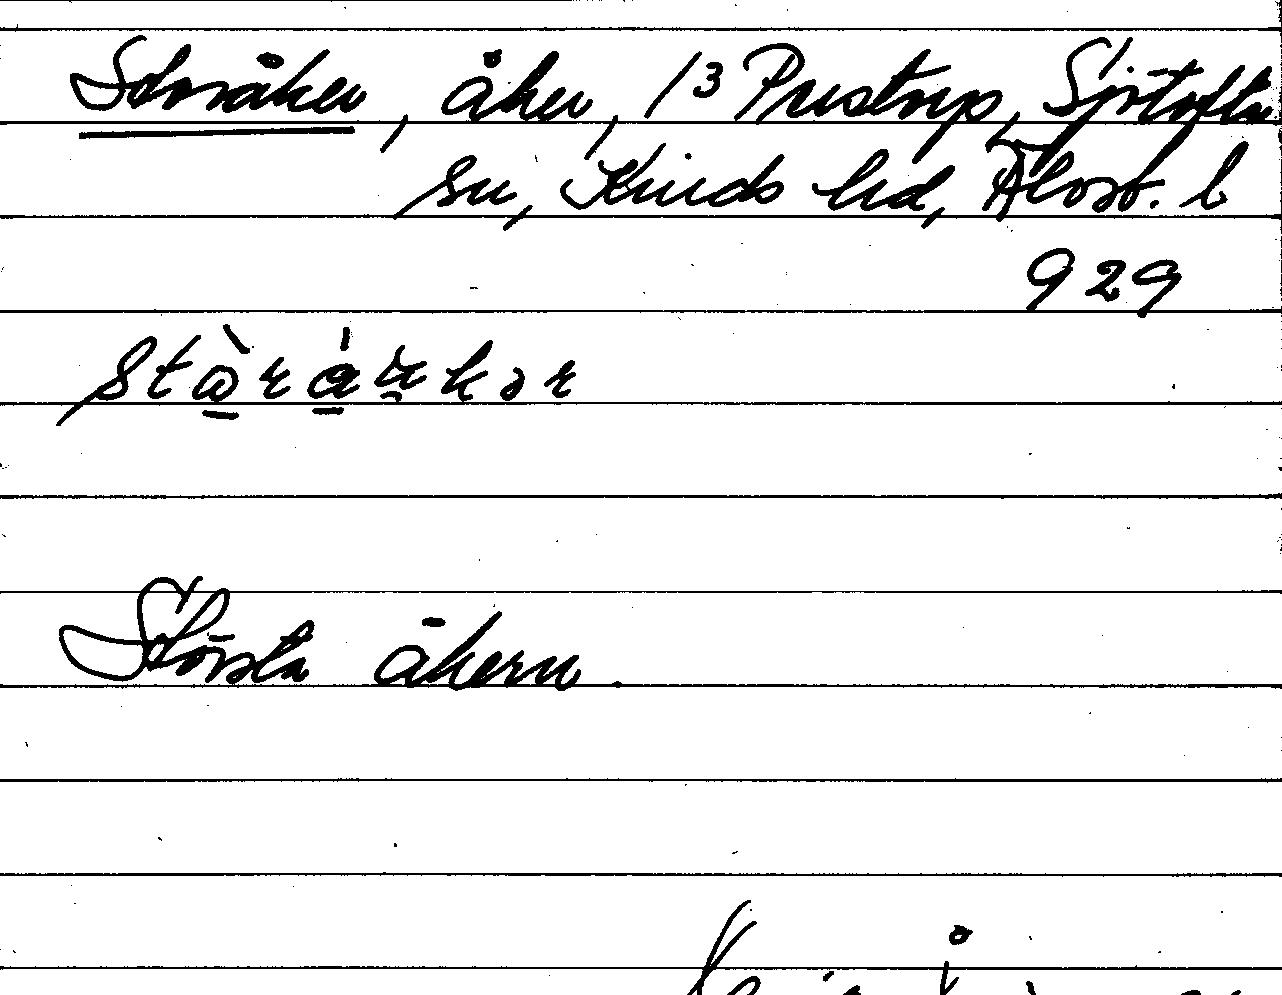 Storåker, åker, 1³ Prustorp, Sjötofta
sn, Kinds hd, Älvsb. l
929
Största åkern.